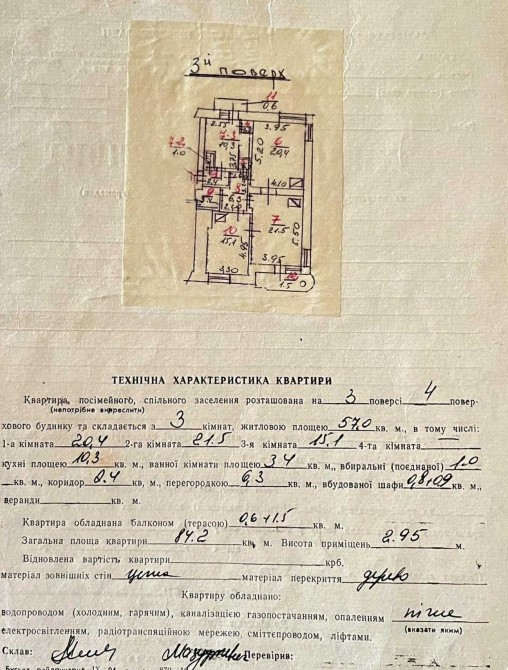 3й поверх
11
0,6
2.55
3.95
7-3
10,3
6
20,4
5.20
7-2
1.0
3.75
2.4
4.10
6,3
7
21.5
5.50
10
15,1
4.95
3.95
3.30
1.5
ТЕХНІЧНА ХАРАКТЕРИСТИКА КВАРТИРИ
Квартира, посімейного, спільного заселення розташована на 3 поверсі 4 повер-
(непотрібне викреслити)
хового будинку та складається з 3 кімнат, житловою площею 57.0 кв. м., в тому числі:
1-а кімната 20,4 2-га кімната 21.5 3-я кімната 15,1 4-та кімната
кухні площею 10,3 кв. м., ванної кімнати площею 3.4 кв. м., вбиральні (поєднаної) 1.0
кв. м., коридор 2.4 кв, м., перегородкою 6,3 кв. м., вбудованої шафи 0,8+0,9 кв. м.,
веранди кв. м.
Квартира обладнана балконом (терасою) 0,6+1.5 кв. м.
Загальна площа квартири 84.2 кв, м. Висота приміщень 2.95 м.
Відновлена вартість квартири крб.
матеріал зовнішніх стін цегла матеріал перекриття дерево
Квартиру обладнано:
водопроводом (холодним, гарячим), каналізацією газопостачанням, опаленням пічне
(вказати яким)
електросвітленням, радіотрансляційною мережею, сміттєпроводом, ліфтами.
Склав: Перевірив: